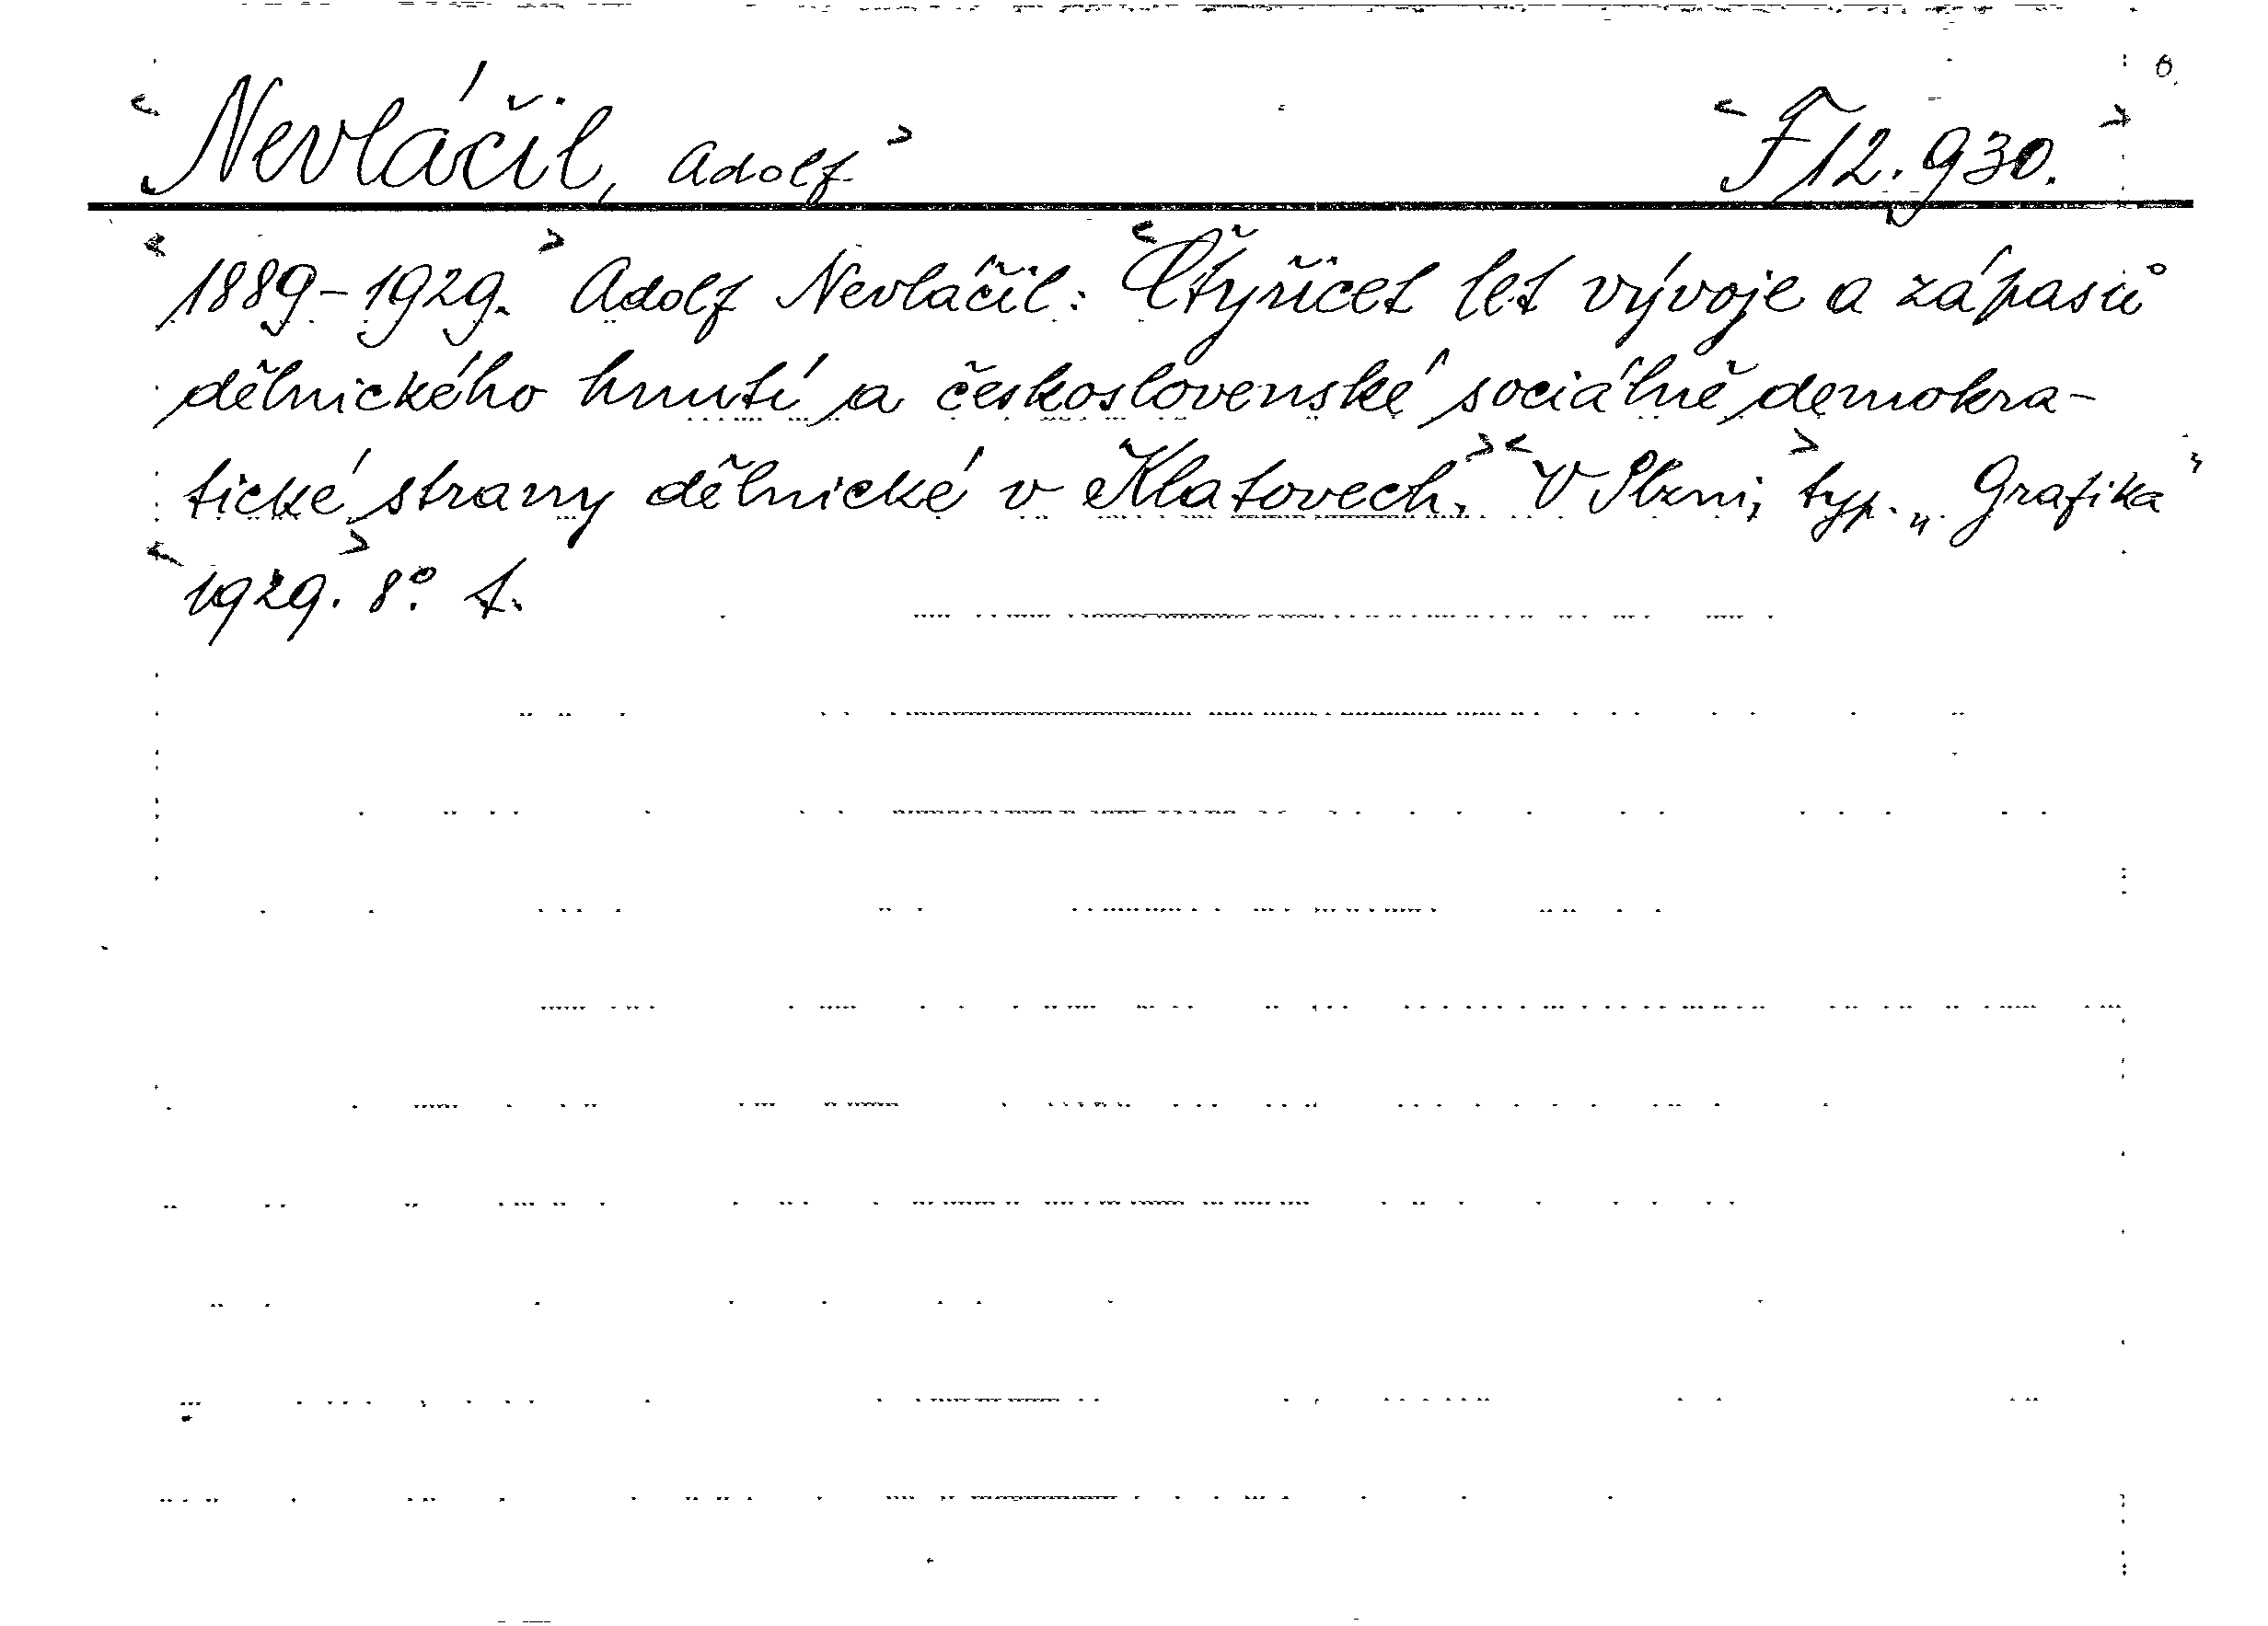 Nevláčil, Adolf F 12.930.
1889-1929. Adolf Nevláčil: Čtyřicet let vývoje a zápasů
dělnického hnutí a československé sociálně demokra-
tické strany dělnické v Klatovech. V Plzni, typ. „Grafika"
1929. 8°.